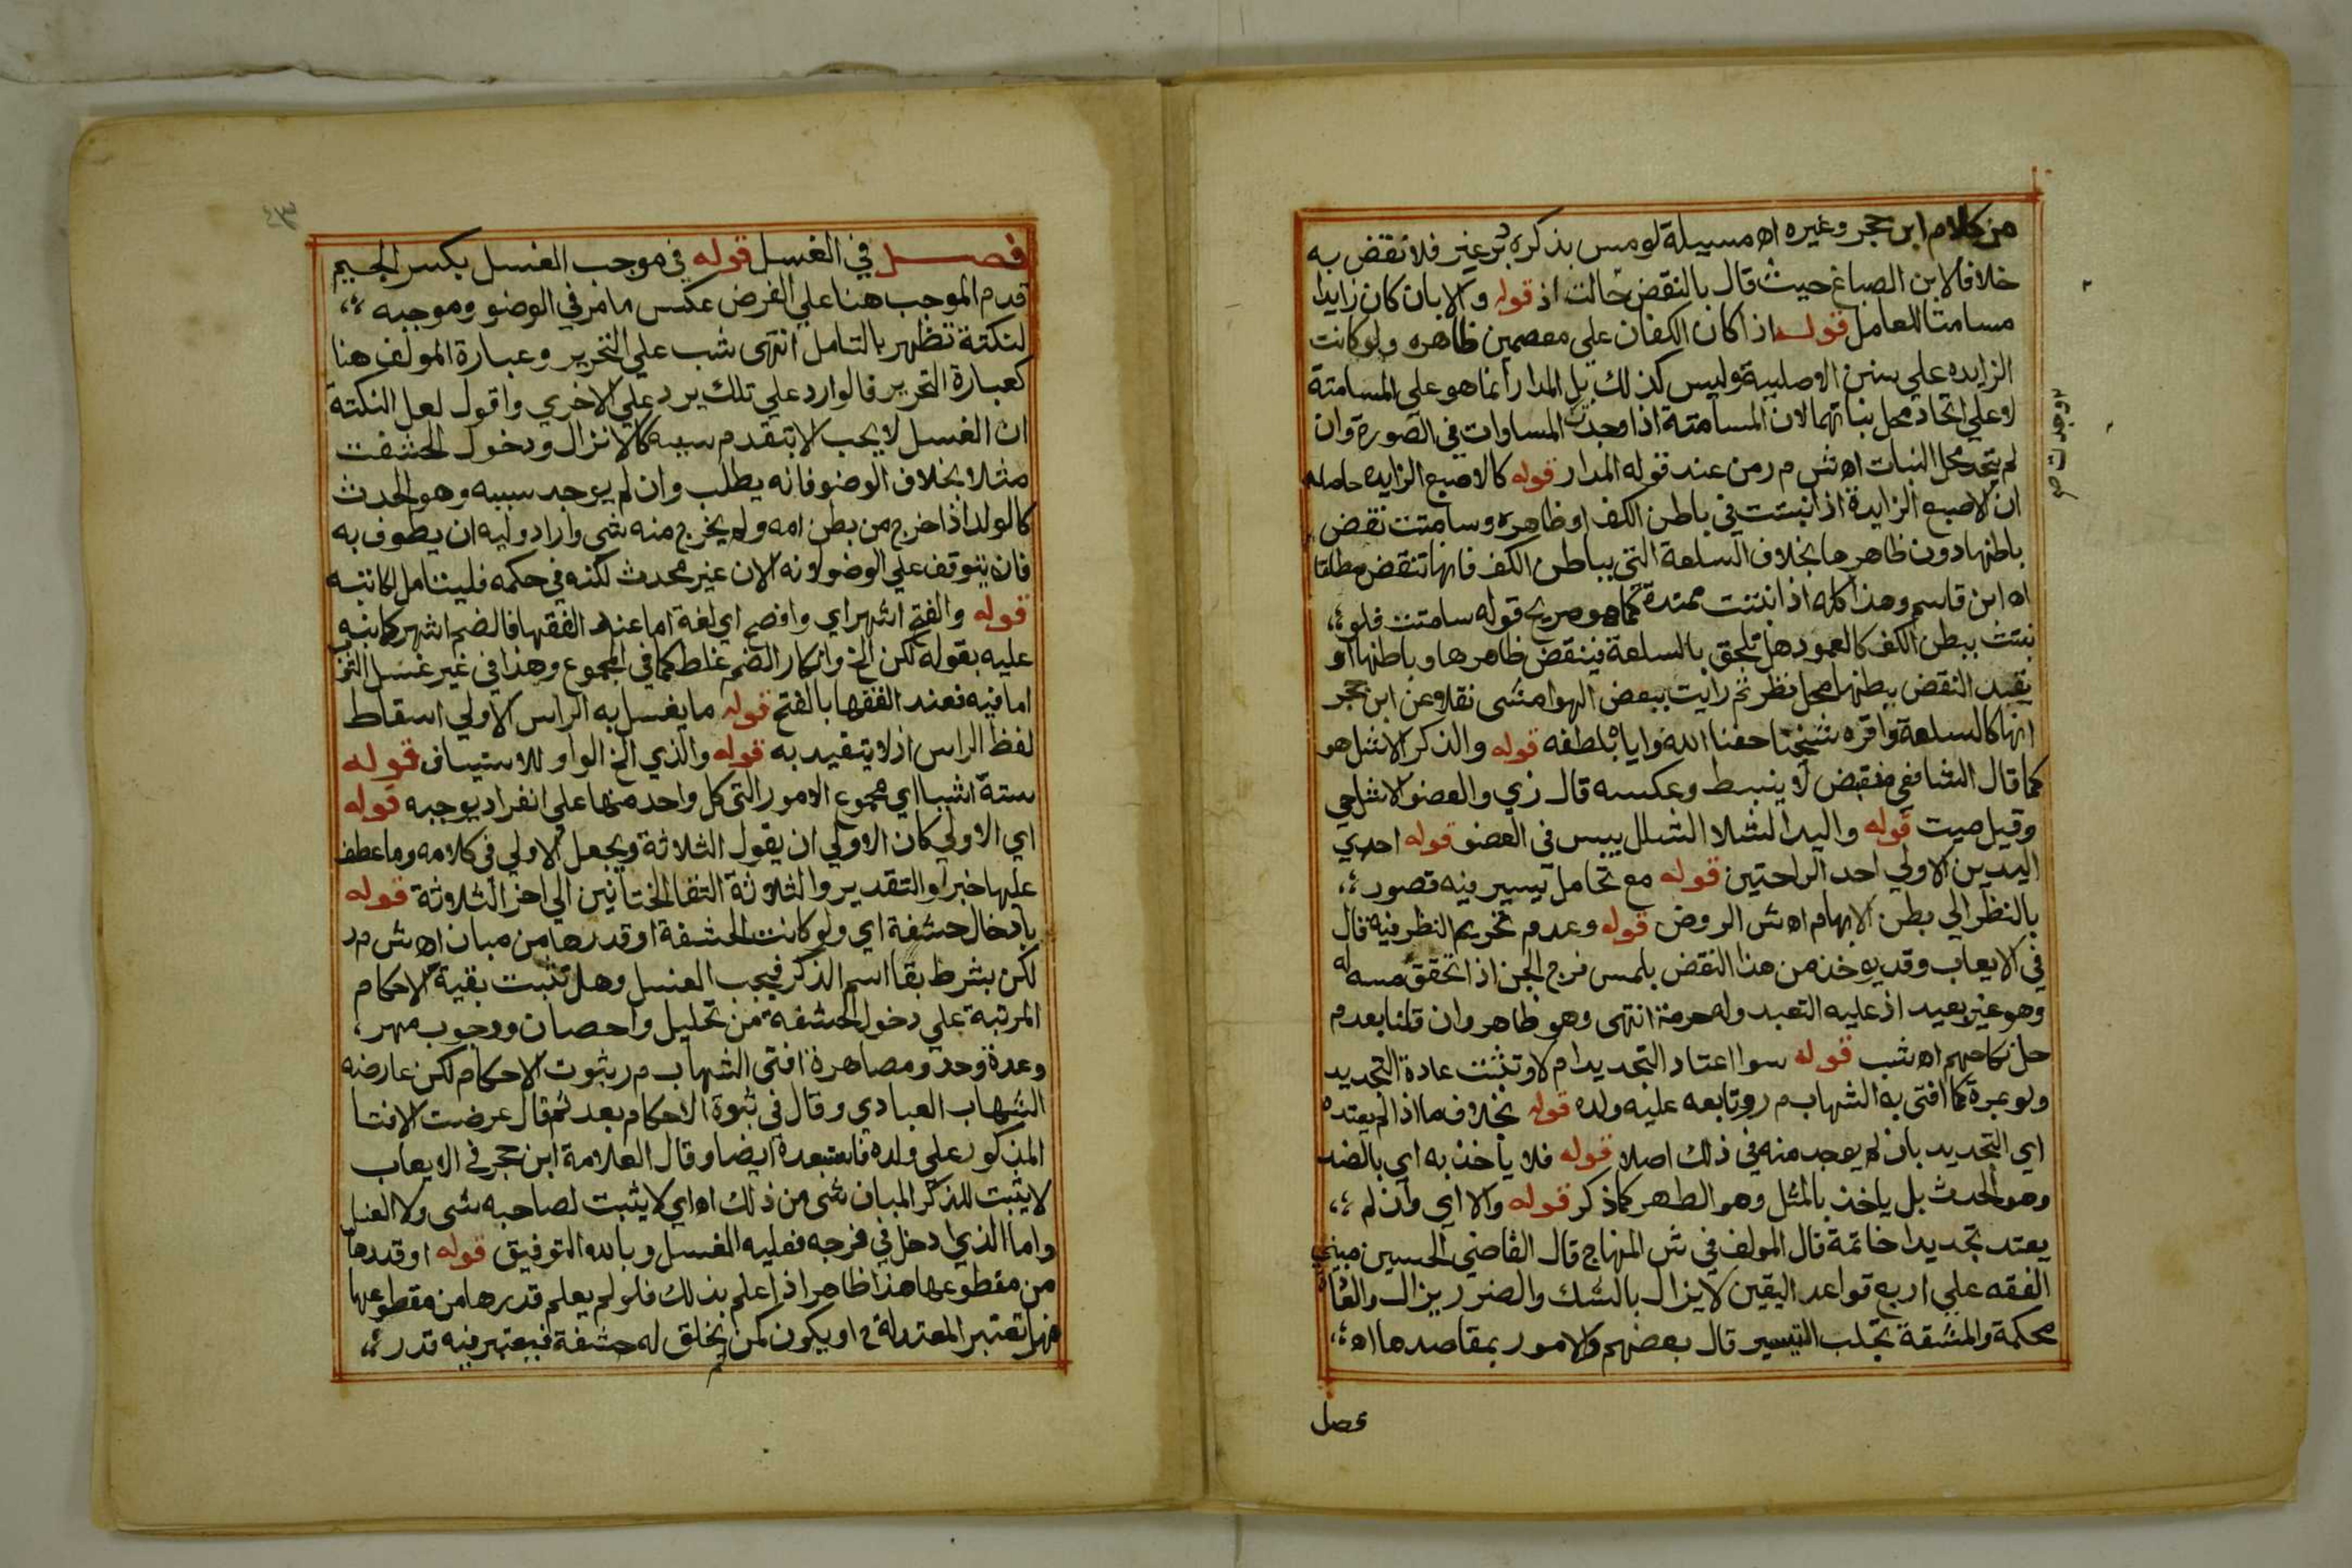 من كلام ابن حجر وغيره اه مسيلة لو مس بذكره دبر غير فلا نقض به
خلافا لابن الصباغ حيث قال بالنقض حالت اذ قوله والا بان كان زايدا
مسامتا للعامل قوله اذا كان الكفان علي معصمين ظاهره ولو كانت
الزايده علي سنن الاصليه وليس كذلك بل المدار انما هو علي المسامتة
لا علي اتحاد محل نباتهما لان المسامتة اذا وجدت المساوات في الصورة وان
لم يتحد محل النبات اه ش م ر من عند قوله المدار قوله كالاصبع الزايده حاصله
ان الاصبع الزايدة اذا نبتت في باطن الكف او ظاهره وسامتت نقض
باطنها دون ظاهرها بخلاف السلعة التي بباطن الكف فانها تنقض مطلقا
اه ابن قاسم وهذا كله اذا نبتت ممتدة كما هو صريح قوله سامتت فلو
نبتت ببطن الكف كالعمود هل تلحق بالسلعة فينقض ظاهرها وباطنها او
يقيد النقض ببطنها محل نظر ثم رايت ببعض الهوامش نقلا عن ابن حجر
انها كالسلعة واقره شيخنا حفنا الله واياه بلطفه قوله والذكر الاشل هو
كما قال الشافعي منقبض لا ينبسط وعكسه قال زي والعضو الاشل حي
وقيل ميت قوله واليد الشلا الشلل يبس في العضو قوله احدي
اليدين الاولي احد الراحتين قوله مع تحامل يسير فيه قصور
بالنظر الي بطن الابهام اه ش الروض قوله وعدم تحريم النظر فيه قال
في الايعاب وقد يوخذ من هذا النقض بلمس فرج الجن اذا تحقق مسه له
وهو غير بعيد اذ عليه التعبد وله حرمة انتهى وهو ظاهر وان قلنا بعدم
حل نكاحهم اه شب قوله سوا اعتاد التجديد ام لا وتثبت عادة التجديد
ولو بمرة كما افتي به الشهاب م ر وتابعه عليه ولده قوله بخلاف ما اذا لم يعتده
اي التجديد بان لم يوجد منه في ذلك اصلا قوله فلا ياخذ به اي بالضد
وهو الحدث بل ياخذ بالمثل وهو الطهر كما ذكر قوله والا اي وان لم
يعتد تجديدا خاتمة قال المولف في ش المنهاج قال القاضي الحسين مبني
الفقه علي اربع قواعد اليقين لا يزال بالشك والضرر يزال والعادة
محكمة والمشقة تجلب التيسير قال بعضهم والامور بمقاصدها اه
فصل
وجدت ص
٤٣
فصل في الغسل قوله في موجب الغسل بكسر الجيم
قدم الموجب هنا علي الفرض عكس ما مر في الوضو وموجبه
لنكتة تظهر بالتامل انتهى شب علي التحرير وعبارة المولف هنا
كعبارة التحرير فالوارد علي تلك يرد علي الاخري واقول لعل النكتة
ان الغسل لا يجب الا بتقدم سببه كالانزال ودخول الحشفت
مثلا بخلاف الوضو فانه يطلب وان لم يوجد سببه وهو الحدث
كالولد اذا خرج من بطن امه ولم يخرج منه شي واراد وليه ان يطوف به
فانه يتوقف علي الوضو لانه الان غير محدث لكنه في حكمه فليتامل لكاتبه
قوله والفتح اشهر اي وافصح اي لغة اما عند الفقها فالضم اشهر كما نبه
عليه بقوله لكن الخ وانكار الضم غلط كما في المجموع وهذا في غير غسل
اما فيه فعند الفقها بالفتح قوله ما يغسل به الراس الاولي اسقاط
لفظ الراس اذ لا يتقيد به قوله والذي الخ الواو للاستيناف قوله
ستة اشيا اي مجموع الامور التي كل واحد منها علي انفراد يوجبه قوله
اي الاولي كان الاولي ان يقول الثلاثة ويجعل الاولي في كلامه وما عطف
عليها خبرا والتقدير والثلاثة التقا الختانين الي اخر الثلاثة قوله
بادخال حشفة اي ولو كانت الحشفة او قدرها من مبان اه ش م ر
لكن بشرط بقا اسم الذكر فيجب الغسل وهل تثبت بقية الاحكام
المرتبة علي دخول الحشفة من تحليل واحصان ووجوب مهر
وعدة وحد ومصاهرة افتى الشهاب م ر بثبوت الاحكام لكن عارضه
الشهاب العبادي وقال في ثبوة الاحكام بعد ثم قال عرضت الافتا
المذكور علي ولده فاستبعدة ايضا وقال العلامة ابن حجر في الايعاب
لا يثبت للذكر المبان شي من ذلك اه اي لا يثبت لصاحبه شي ولا الغسل
واما الذي ادخل في فرجه فعليه الغسل وبالله التوفيق قوله او قدرها
من مقطوعها هذا ظاهر اذا علم بذلك فلو لم يعلم قدرها من مقطوعها
فهل تعتبر المعتدلة او يكون كمن لم يخلق له حشفة فيعتبر فيه قدر